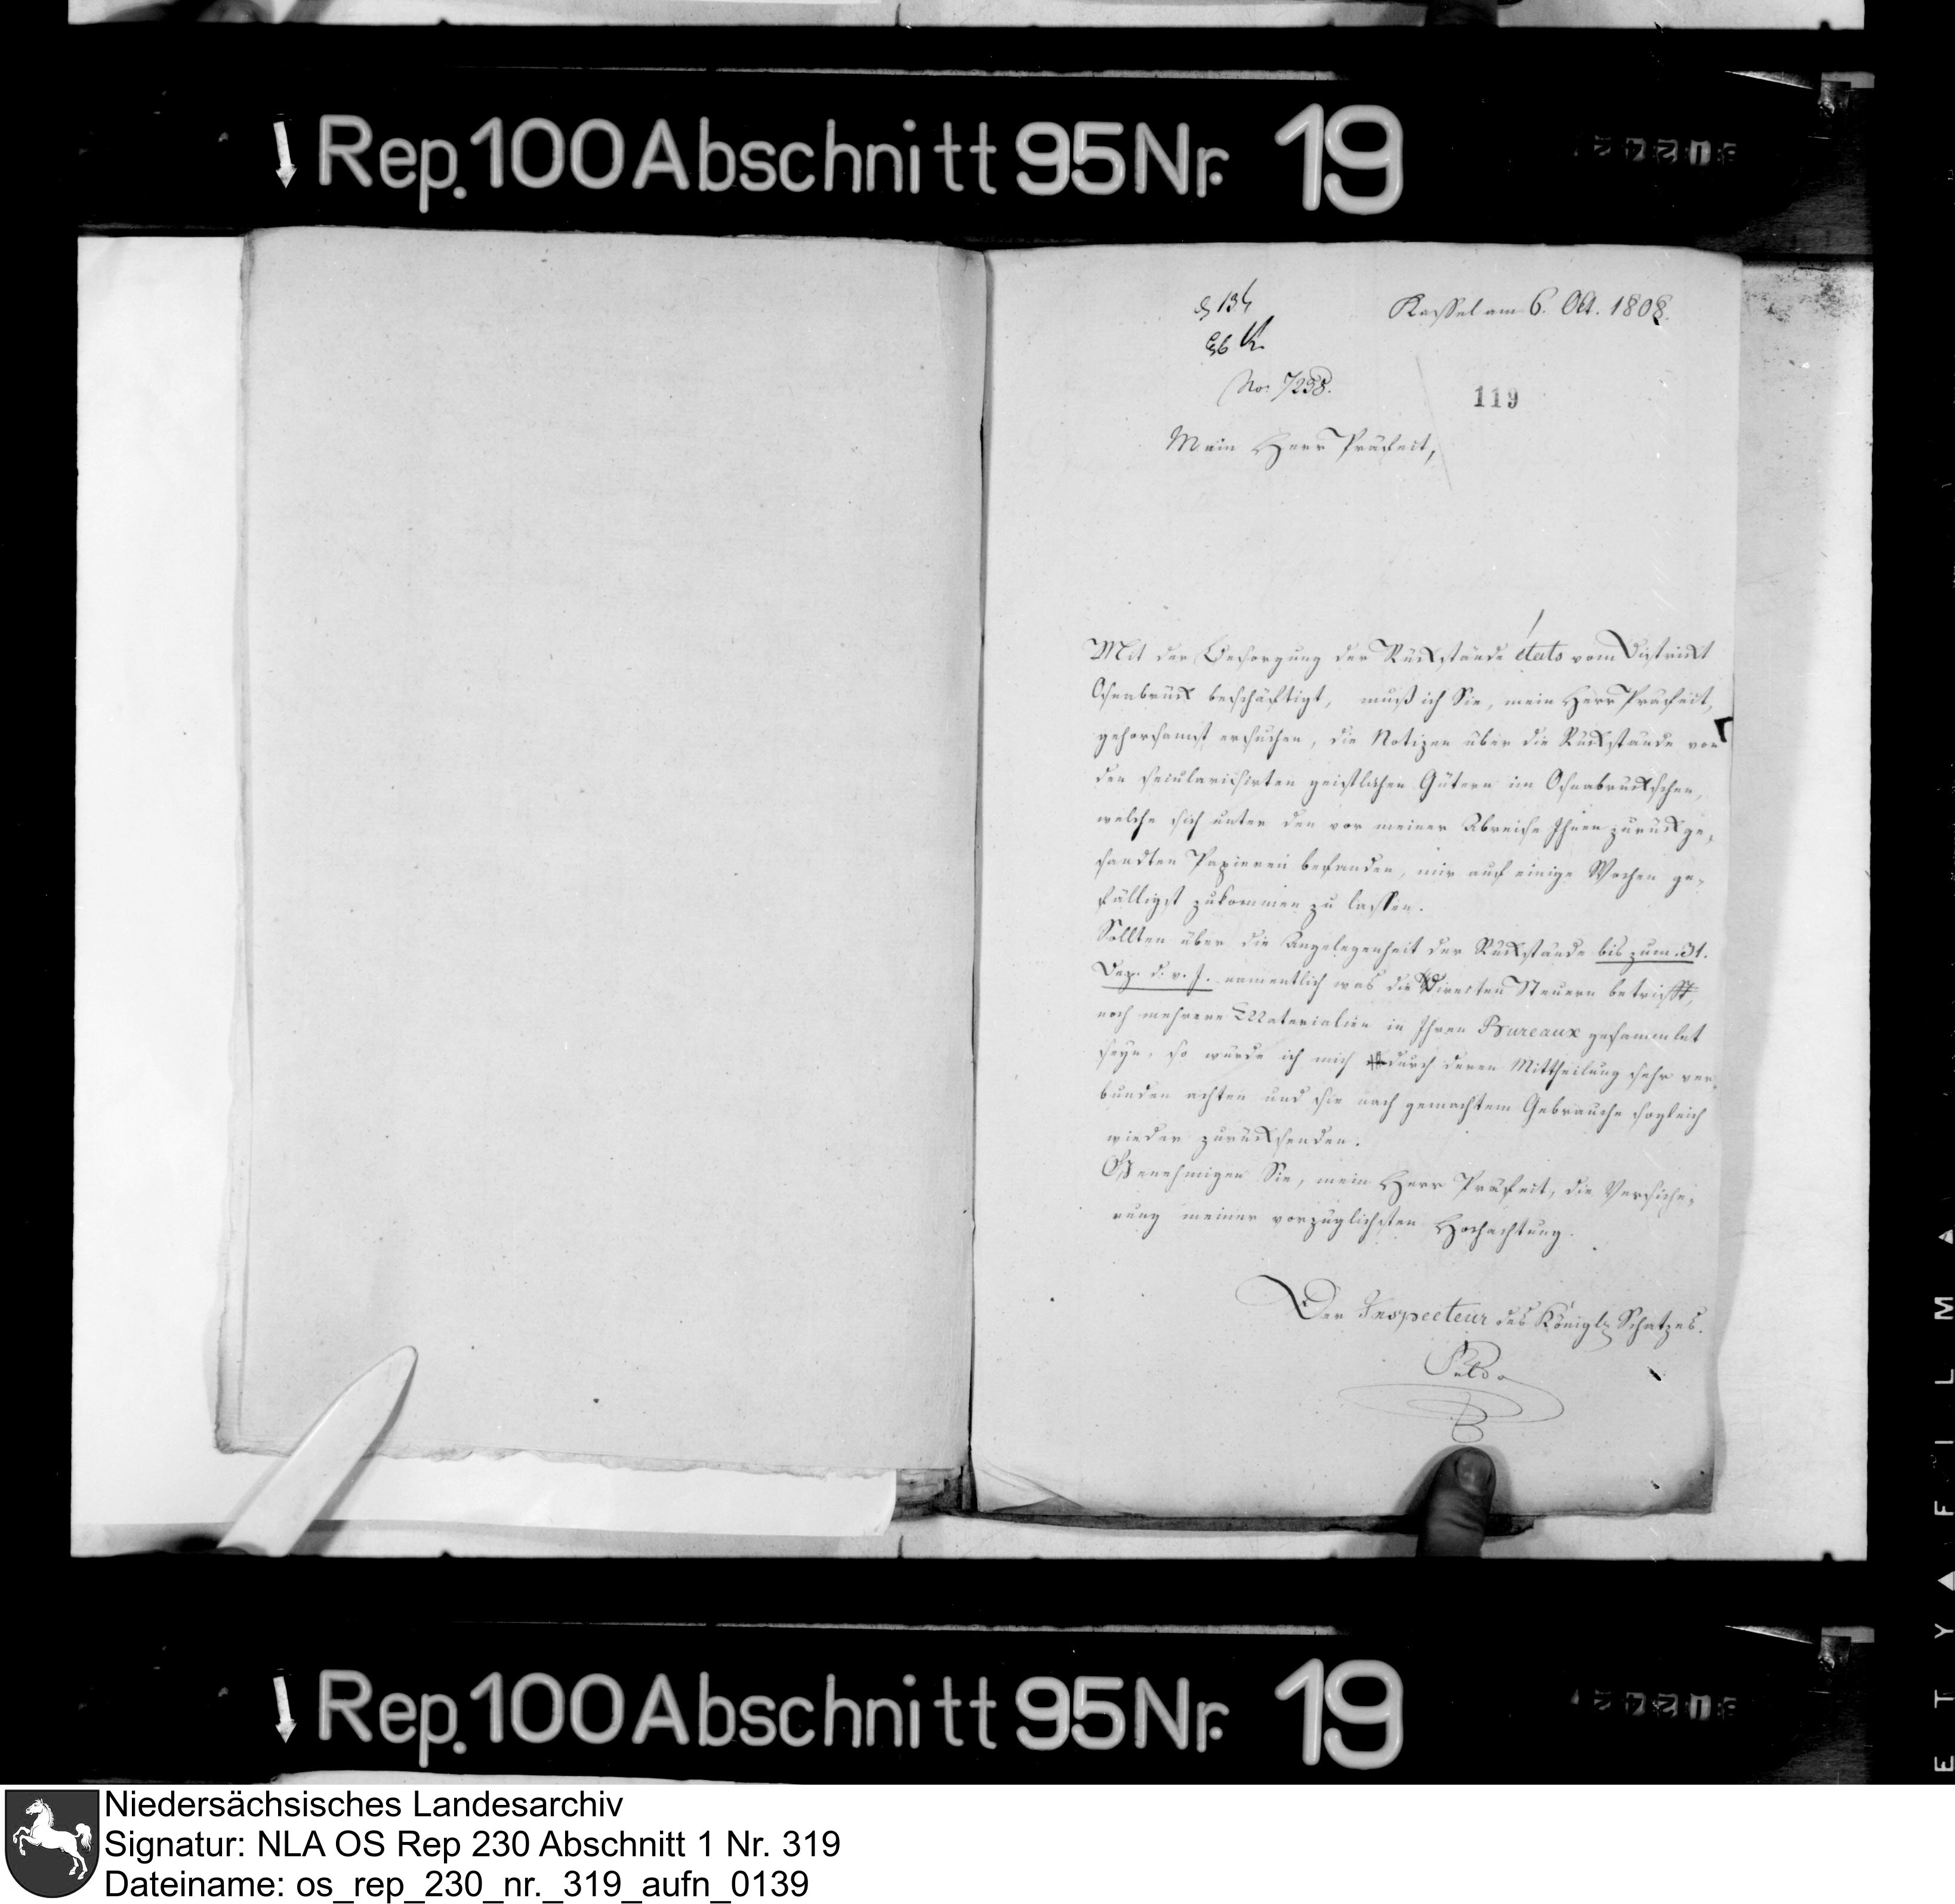 Rep. 100 Abschnitt 95 Nr. 19
Kassel am 6. Okt. 1808.
No: 7258.
119
Mein Herr Präfect,
Mit der Besorgung der Rückstände états vom District
Osnabrück beschäftigt, muß ich Sie, mein Herr Präfect,
gehorsamst ersuchen, die Notizen über die Rückstände von
den secularisirten geistlichen Gütern im Osnabrückschen,
welche sich unter den vor meiner Abreise Ihnen zurückge-
sandten Papieren befanden, mir auf einige Wochen ge-
fälligst zukommen zu lassen.
Sollten über die Angelegenheit der Rückstände bis zum 31.
Dez. d. v. J. namentlich was die Directen Steuern betrifft,
noch mehrere Materialien in Ihren Bureaux gesammlet
seyn, so würde ich mich durch deren Mittheilung sehr ver-
bunden achten und sie nach gemachtem Gebrauche sogleich
wieder zurücksenden.
Genehmigen Sie, mein Herr Präfect, die Versiche-
rung meiner vorzüglichsten Hochachtung.
Der Inspecteur des Königl. Schatzes.
Rep. 100 Abschnitt 95 Nr. 19
Niedersächsisches Landesarchiv
Signatur: NLA OS Rep 230 Abschnitt 1 Nr. 319
Dateiname: os_rep_230_nr._319_aufn_0139